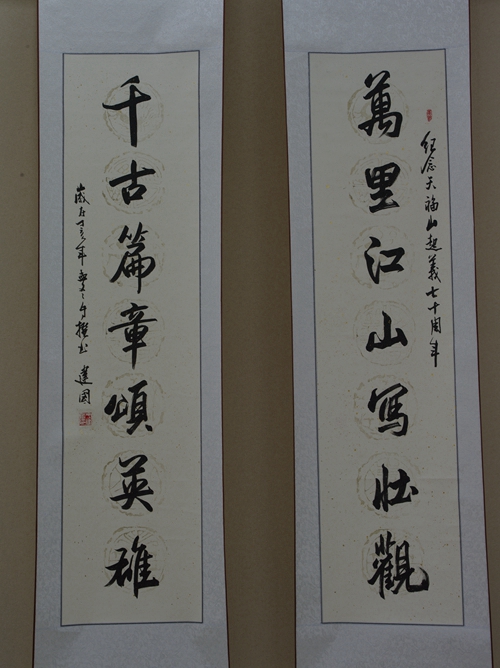 紀念天福山起義七十周年
萬里江山写壯觀
千古篇章頌英雄
歲在丁亥年
撰书 建国